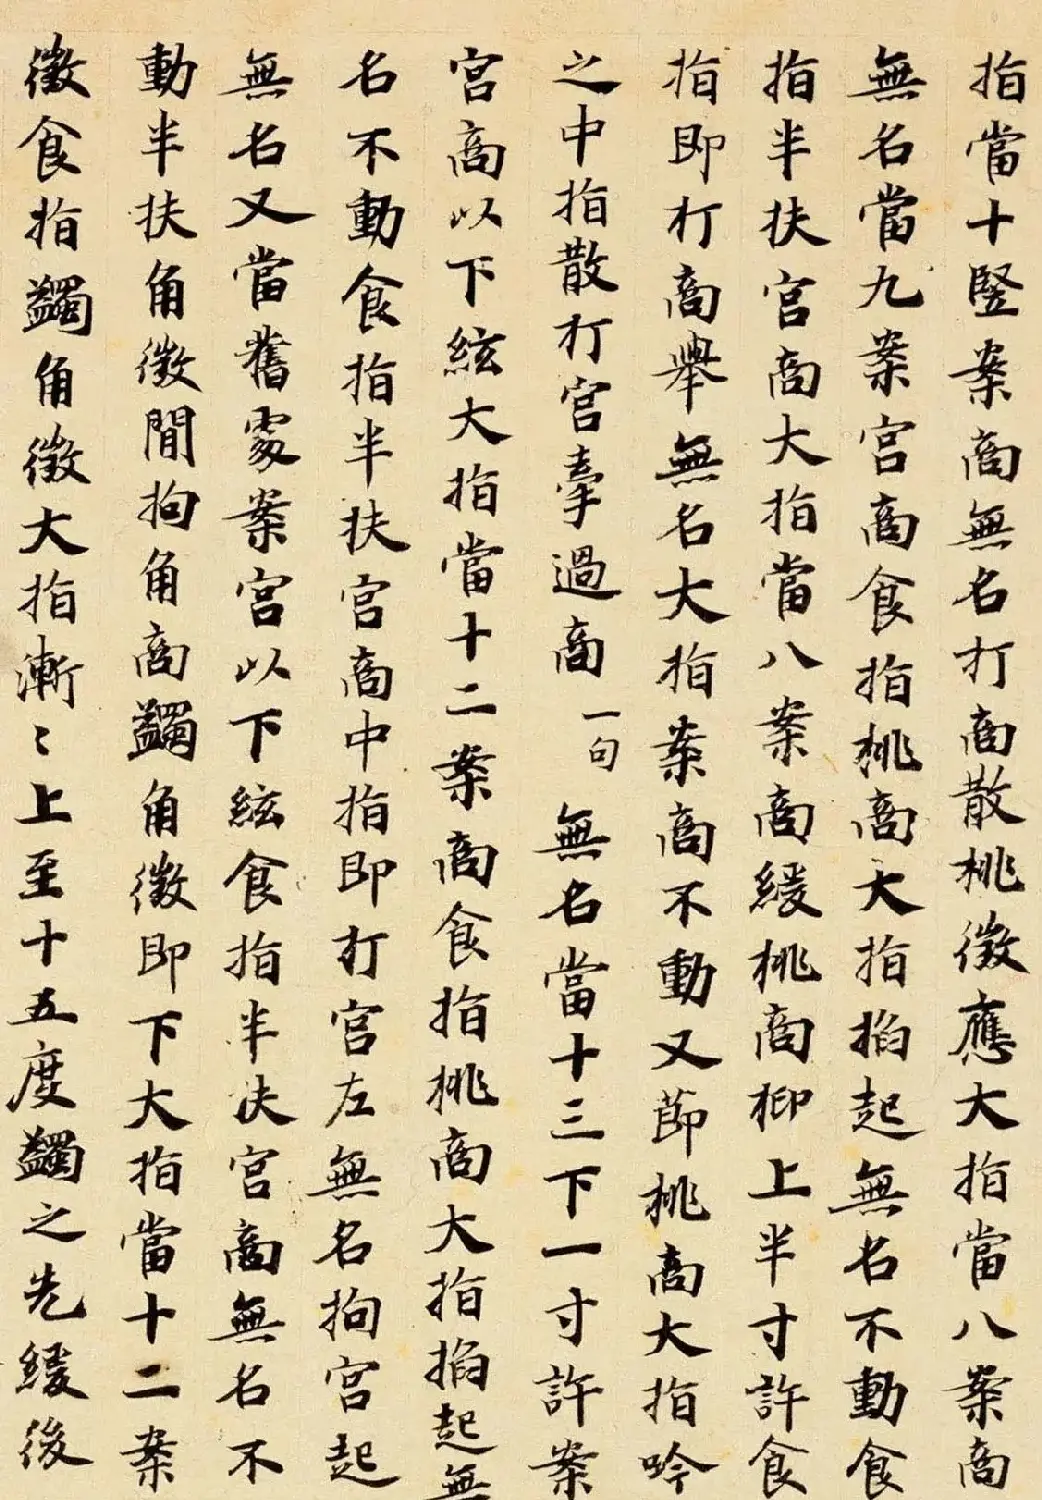 指當十竪案商無名打商散桃徵應大指當八案商
無名當九案宮商食指桃商大指掐起無名不動食
指半扶宮商大指當八案商緩桃商抑上半寸許食
指即打商舉無名大指案商不動又節桃商大指吟
之中指散打宮牽過商一句無名當十三下一寸許案
宮商以下絃大指當十二案商食指桃商大指掐起無
名不動食指半扶宮商中指即打宮左無名拘宮起
無名又當舊處案宮以下絃食指半扶宮商無名不
動半扶角徵間拘角商蠲角徵即下大指當十二案
徵食指蠲角徵大指漸〻上至十五度蠲之先緩後